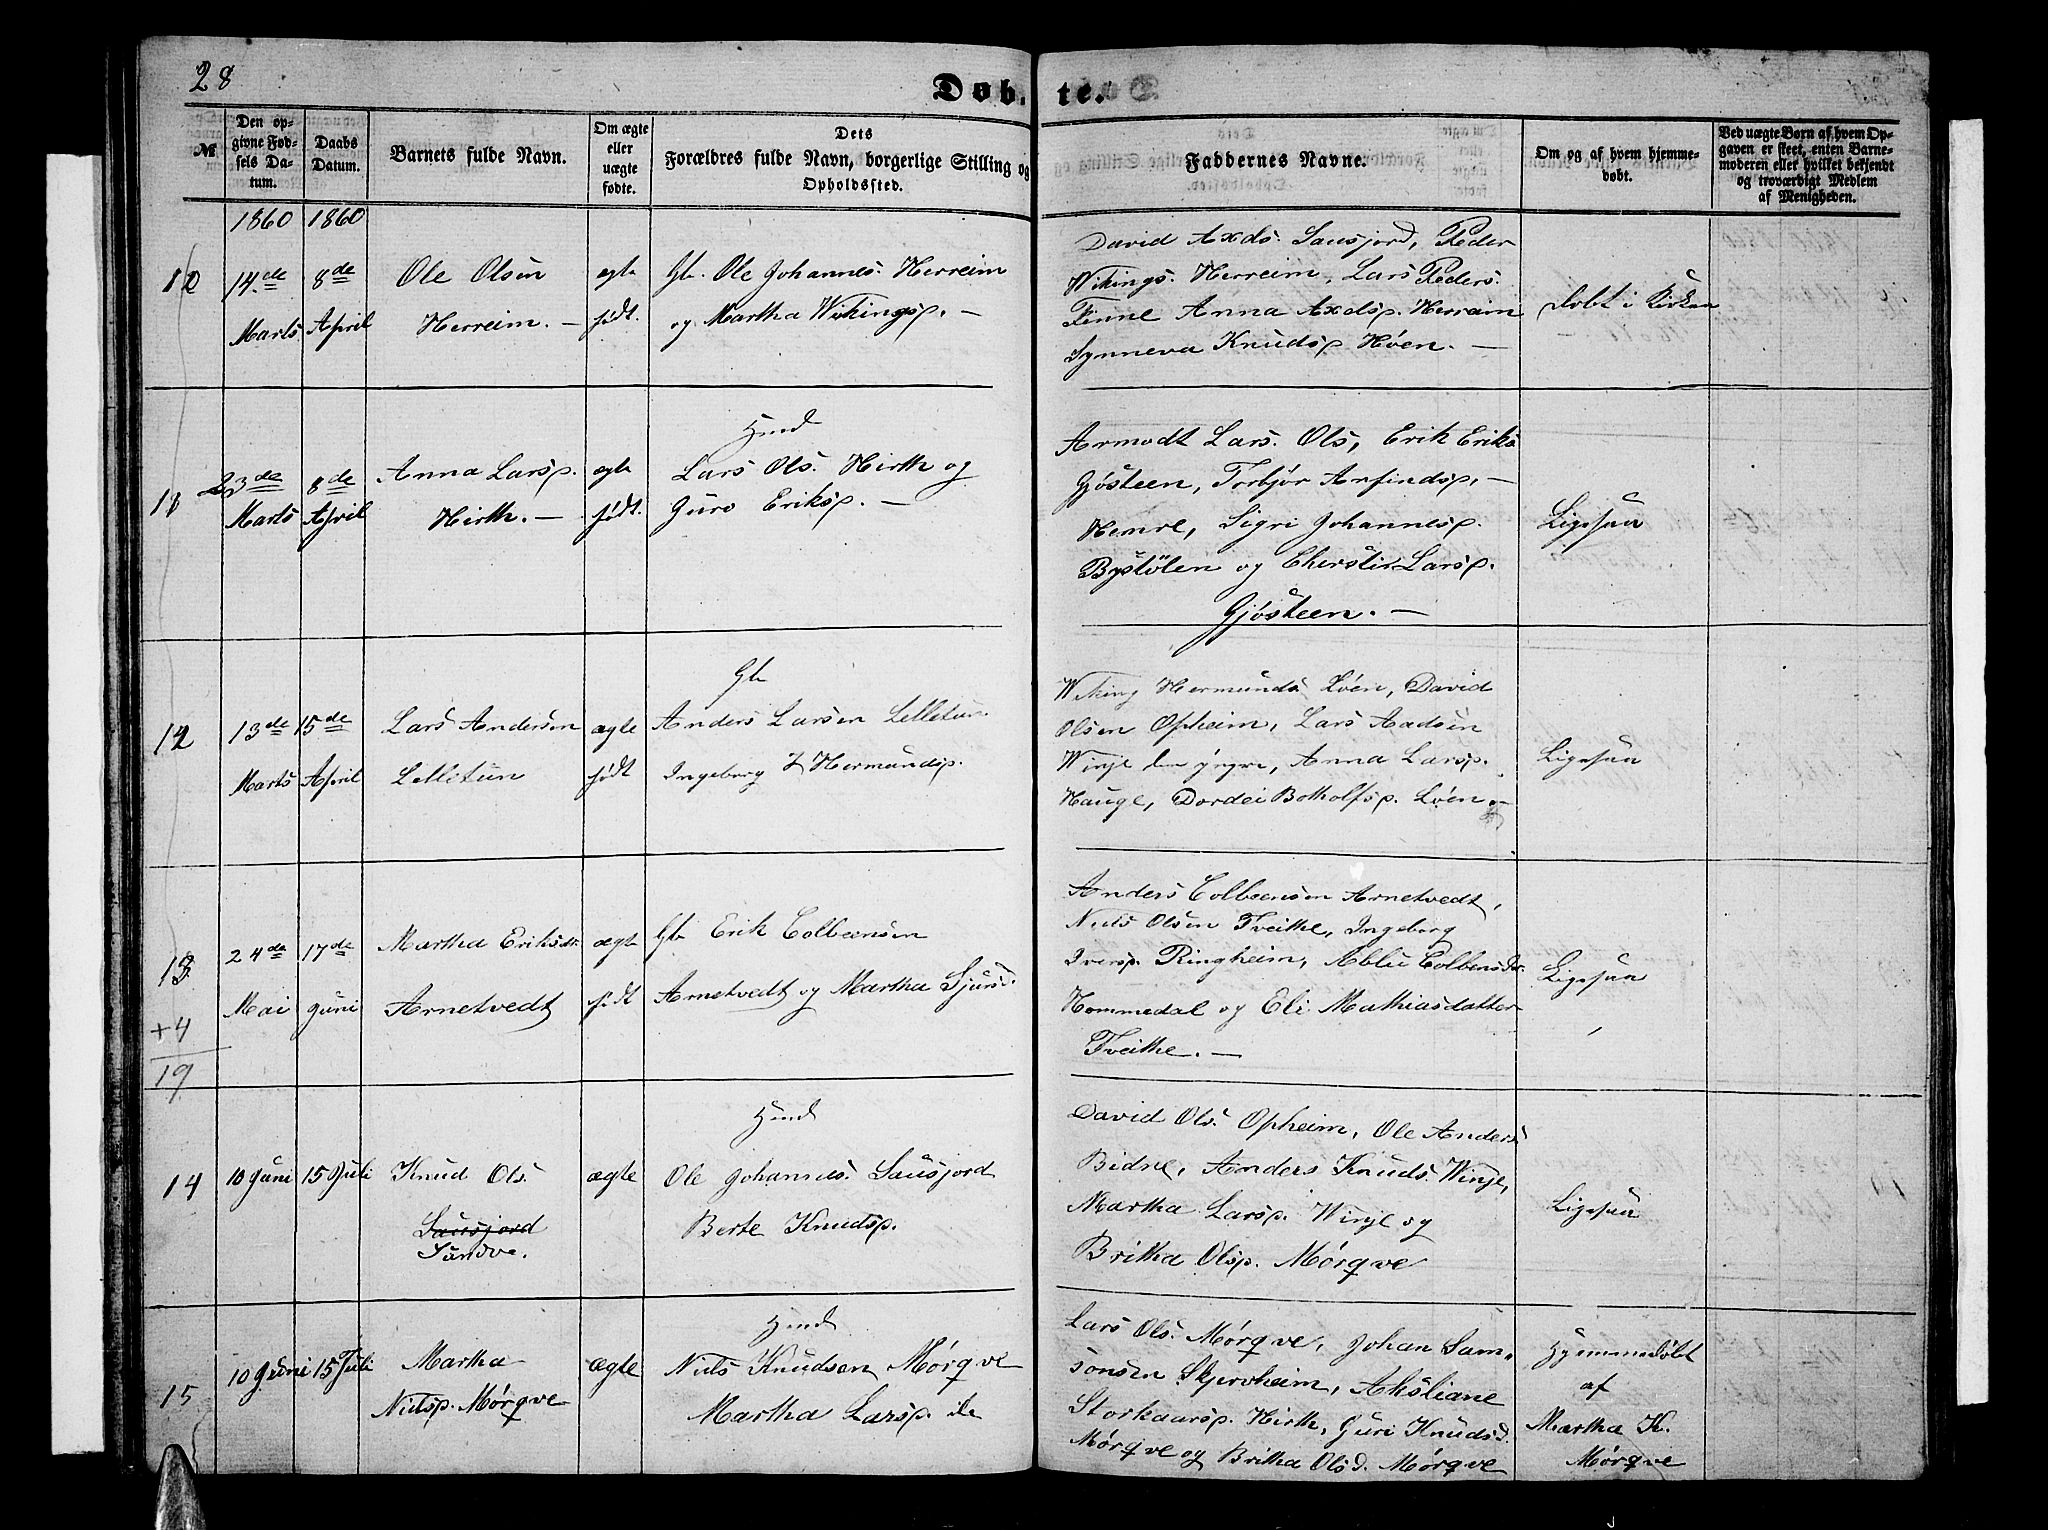 28
Døb- te.
№
Den op-
givne Fød-
sels Da-
tum.
Daabs
Datum.
Barnets fulde Navn.
Om ægte
eller
uægte
fødte.
Dets
Forældres fulde Navn, borgerlige Stilling og
Opholdssted.
Faddernes Navne.
Om og af hvem hjemme-
døbt.
Ved uægte Børn af hvem Op-
gaven er skeet, enten Barne-
moderen eller hvilket bekjendt
og troværdigt Medlem
af Menigheden.
1860 1860
10 14.de Marts
8de April
Ole Olsen
Herreim. —
egte
født.
Gb. Ole Johannes. Herreim
og Martha Wikingsp. —
David Axds. Sausjord, Peder
Wikings. Herreim, Lars Peders.
Finne Anna Axdsp. Herreim
Synneva Knudsp Høen. —
Døbt i Kirken
—
11 23de Marts
8de April
Anna Larsp.
Hirth. —
egte
født.
Huusd
Lars Ols. Hirth og
Guro Eriksp. —
Armodt Lars. Ols, Erik Eriks
Gjøsteen, Torbjør Arfindsp, —
Hemre, Sigri Johannesp.
Bystølen og Cherstie Larsp.
Gjøsteen. —
Ligesaa
12 13de Marts
15de April
Lars Andersen
Lelletun
ægte
født
Gb
Anders Larsen Lelletun
Ingeborg Hermundsp.
Wiking Hermunds Løen, David
Olsen Opheim, Lars Aadsen
Winje den yngre, Anna Larsp.
Hauge, Dordei Botholfsp. Løen
Ligesaa
13 24de Mai
17de Juni
Martha Eriksdr.
Arnetvedt
ægte
født
Gb Erik Colbeensen
Arnetvedt og Martha Sjursd.
Anders Colbeensen Arnetvedt,
Niels Olsen Tveithe, Ingeborg
Iversp. Ringheim, Ablu Colbensdr.
Hommedal og Eli Mathiasdatter
Tveithe. —
Ligesaa
+4
19
14 10 Juni 15 Juli
Knud Ols.
Sausjord
Sundve.
ægte
Huusd
Ole Johannes. Sausjord
Berte Knudsp.
David Ols. Opheim, Ole Anders.
Bidne, Anders Knuds. Winje,
Martha Larsp. Winje og
Britha Olsp. Mørqve
Ligesaa
15 10 Juni 15 Juli
Martha
Nielsp. Mørqve
ægte
Huusd
Niels Knudsen Mørqve
Martha Larsp. de
Lars Ols. Mørqve, Johan Sam-
sonsen Skjervheim, Aksliane
Storkaarsp. Hirth, Guri Knudsd.
Mørqve og Britha Olsd. Mørqve
Hjemmedøbt
af
Martha K.
Mørqve